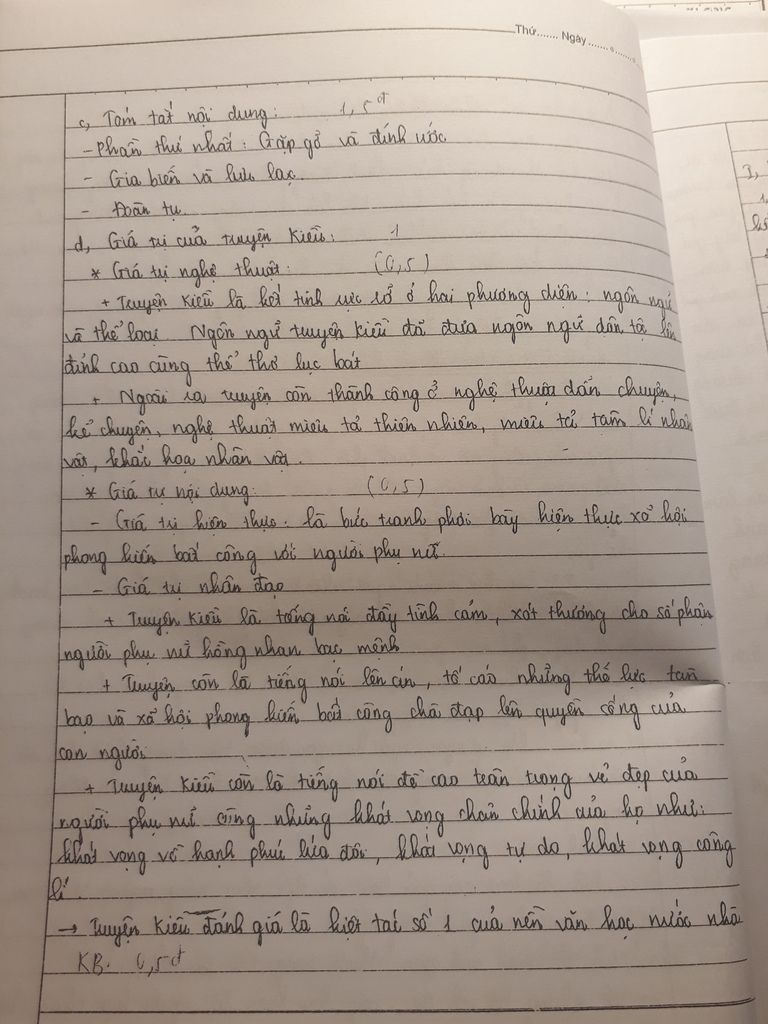 Thứ....... Ngày.......
c, Tóm tắt nội dung: 1,5đ
- Phần thứ nhất: Gặp gỡ và đính ước
- Gia biến và lưu lạc
- Đoàn tụ
d, Giá trị của truyện Kiều: 1
* Giá trị nghệ thuật: (0,5)
+ Truyện Kiều là kết tinh rực rỡ ở hai phương diện: ngôn ngữ
và thể loại Ngôn ngữ truyện Kiều đã đưa ngôn ngữ dân tộc lên
đỉnh cao cùng thể thơ lục bát
+ Ngoài ra truyện còn thành công ở nghệ thuật dẫn chuyện,
kể chuyện, nghệ thuật miêu tả thiên nhiên, miêu tả tâm lí nhân
vật, khắc hoạ nhân vật.
* Giá trị nội dung: (0,5)
- Giá trị hiện thực: là bức tranh phơi bày hiện thực xã hội
phong kiến bất công với người phụ nữ
- Giá trị nhân đạo
+ Truyện Kiều là tiếng nói đầy tình cảm, xót thương cho số phận
người phụ nữ hồng nhan bạc mệnh
+ Truyện còn là tiếng nói lên án, tố cáo những thế lực tàn
bạo và xã hội phong kiến bất công chà đạp lên quyền sống của
con người
+ Truyện Kiều còn là tiếng nói đề cao trân trọng vẻ đẹp của
người phụ nữ cùng những khát vọng chân chính của họ như:
khát vọng về hạnh phúc lứa đôi, khát vọng tự do, khát vọng công
lí.
→ Truyện Kiều đánh giá là kiệt tác số 1 của nền văn học nước nhà
KB. 0,5đ